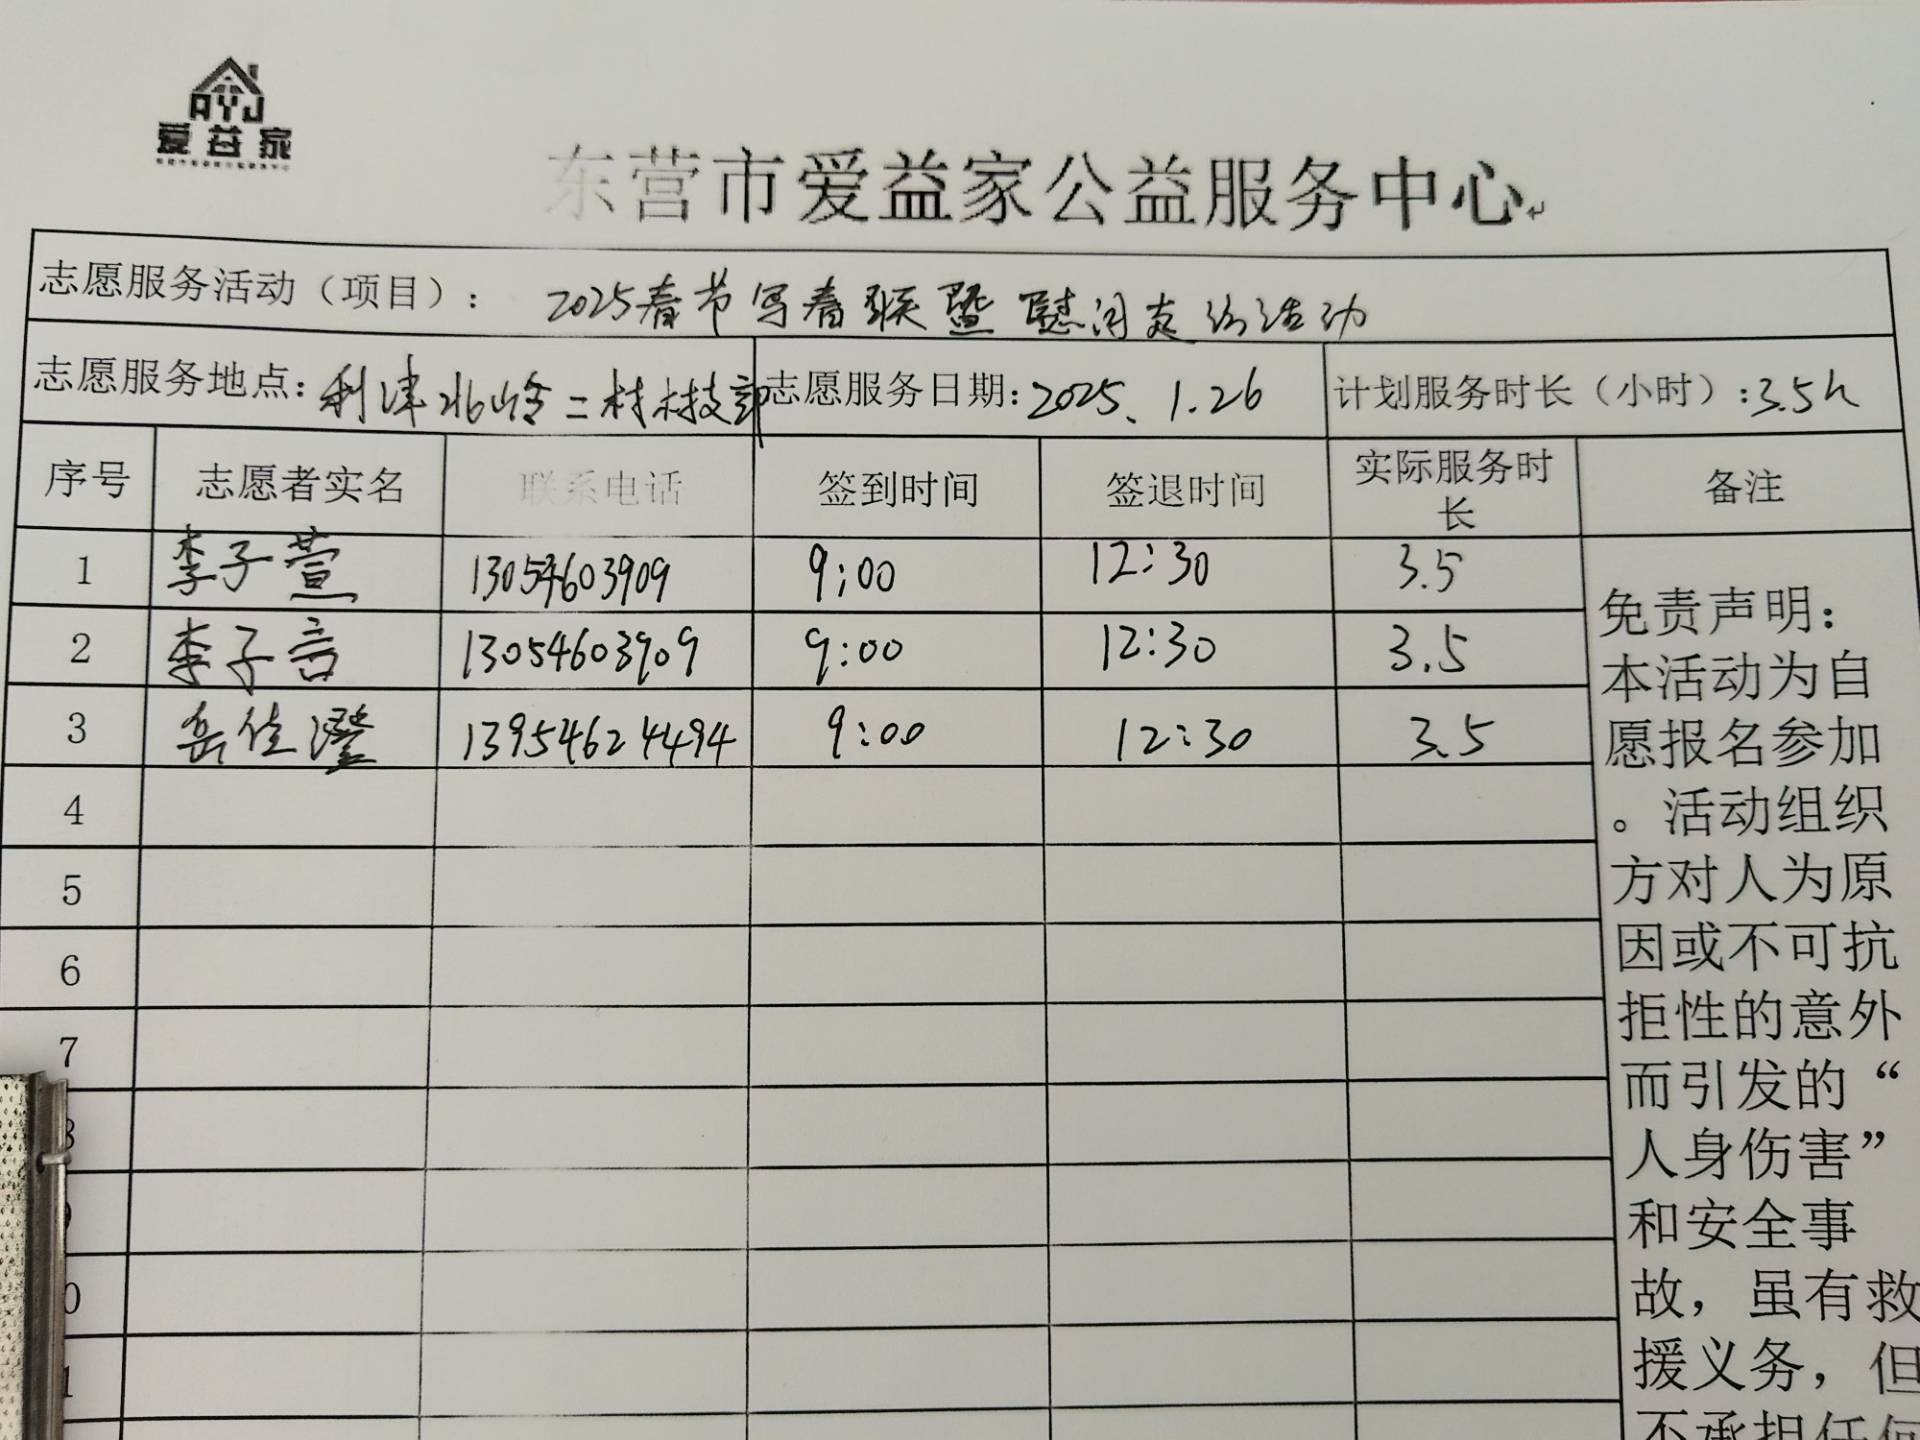 AYJ
爱益家
东营市爱益家公益服务中心
志愿服务活动（项目）： 2025春节写春联暨慰问走访活动
志愿服务地点：利津北岭二村村支部 志愿服务日期：2025、1.26 计划服务时长（小时）：3.5h
序号 志愿者实名 联系电话 签到时间 签退时间 实际服务时长 备注
1 李子萱 13054603909 9:00 12:30 3.5
2 李子言 13054603909 9:00 12:30 3.5
3 岳佳滢 13954624494 9:00 12:30 3.5
4
5
6
7
8
9
0
1
免责声明：
本活动为自
愿报名参加
。活动组织
方对人为原
因或不可抗
拒性的意外
而引发的“
人身伤害”
和安全事
故，虽有救
援义务，但
不承担任何